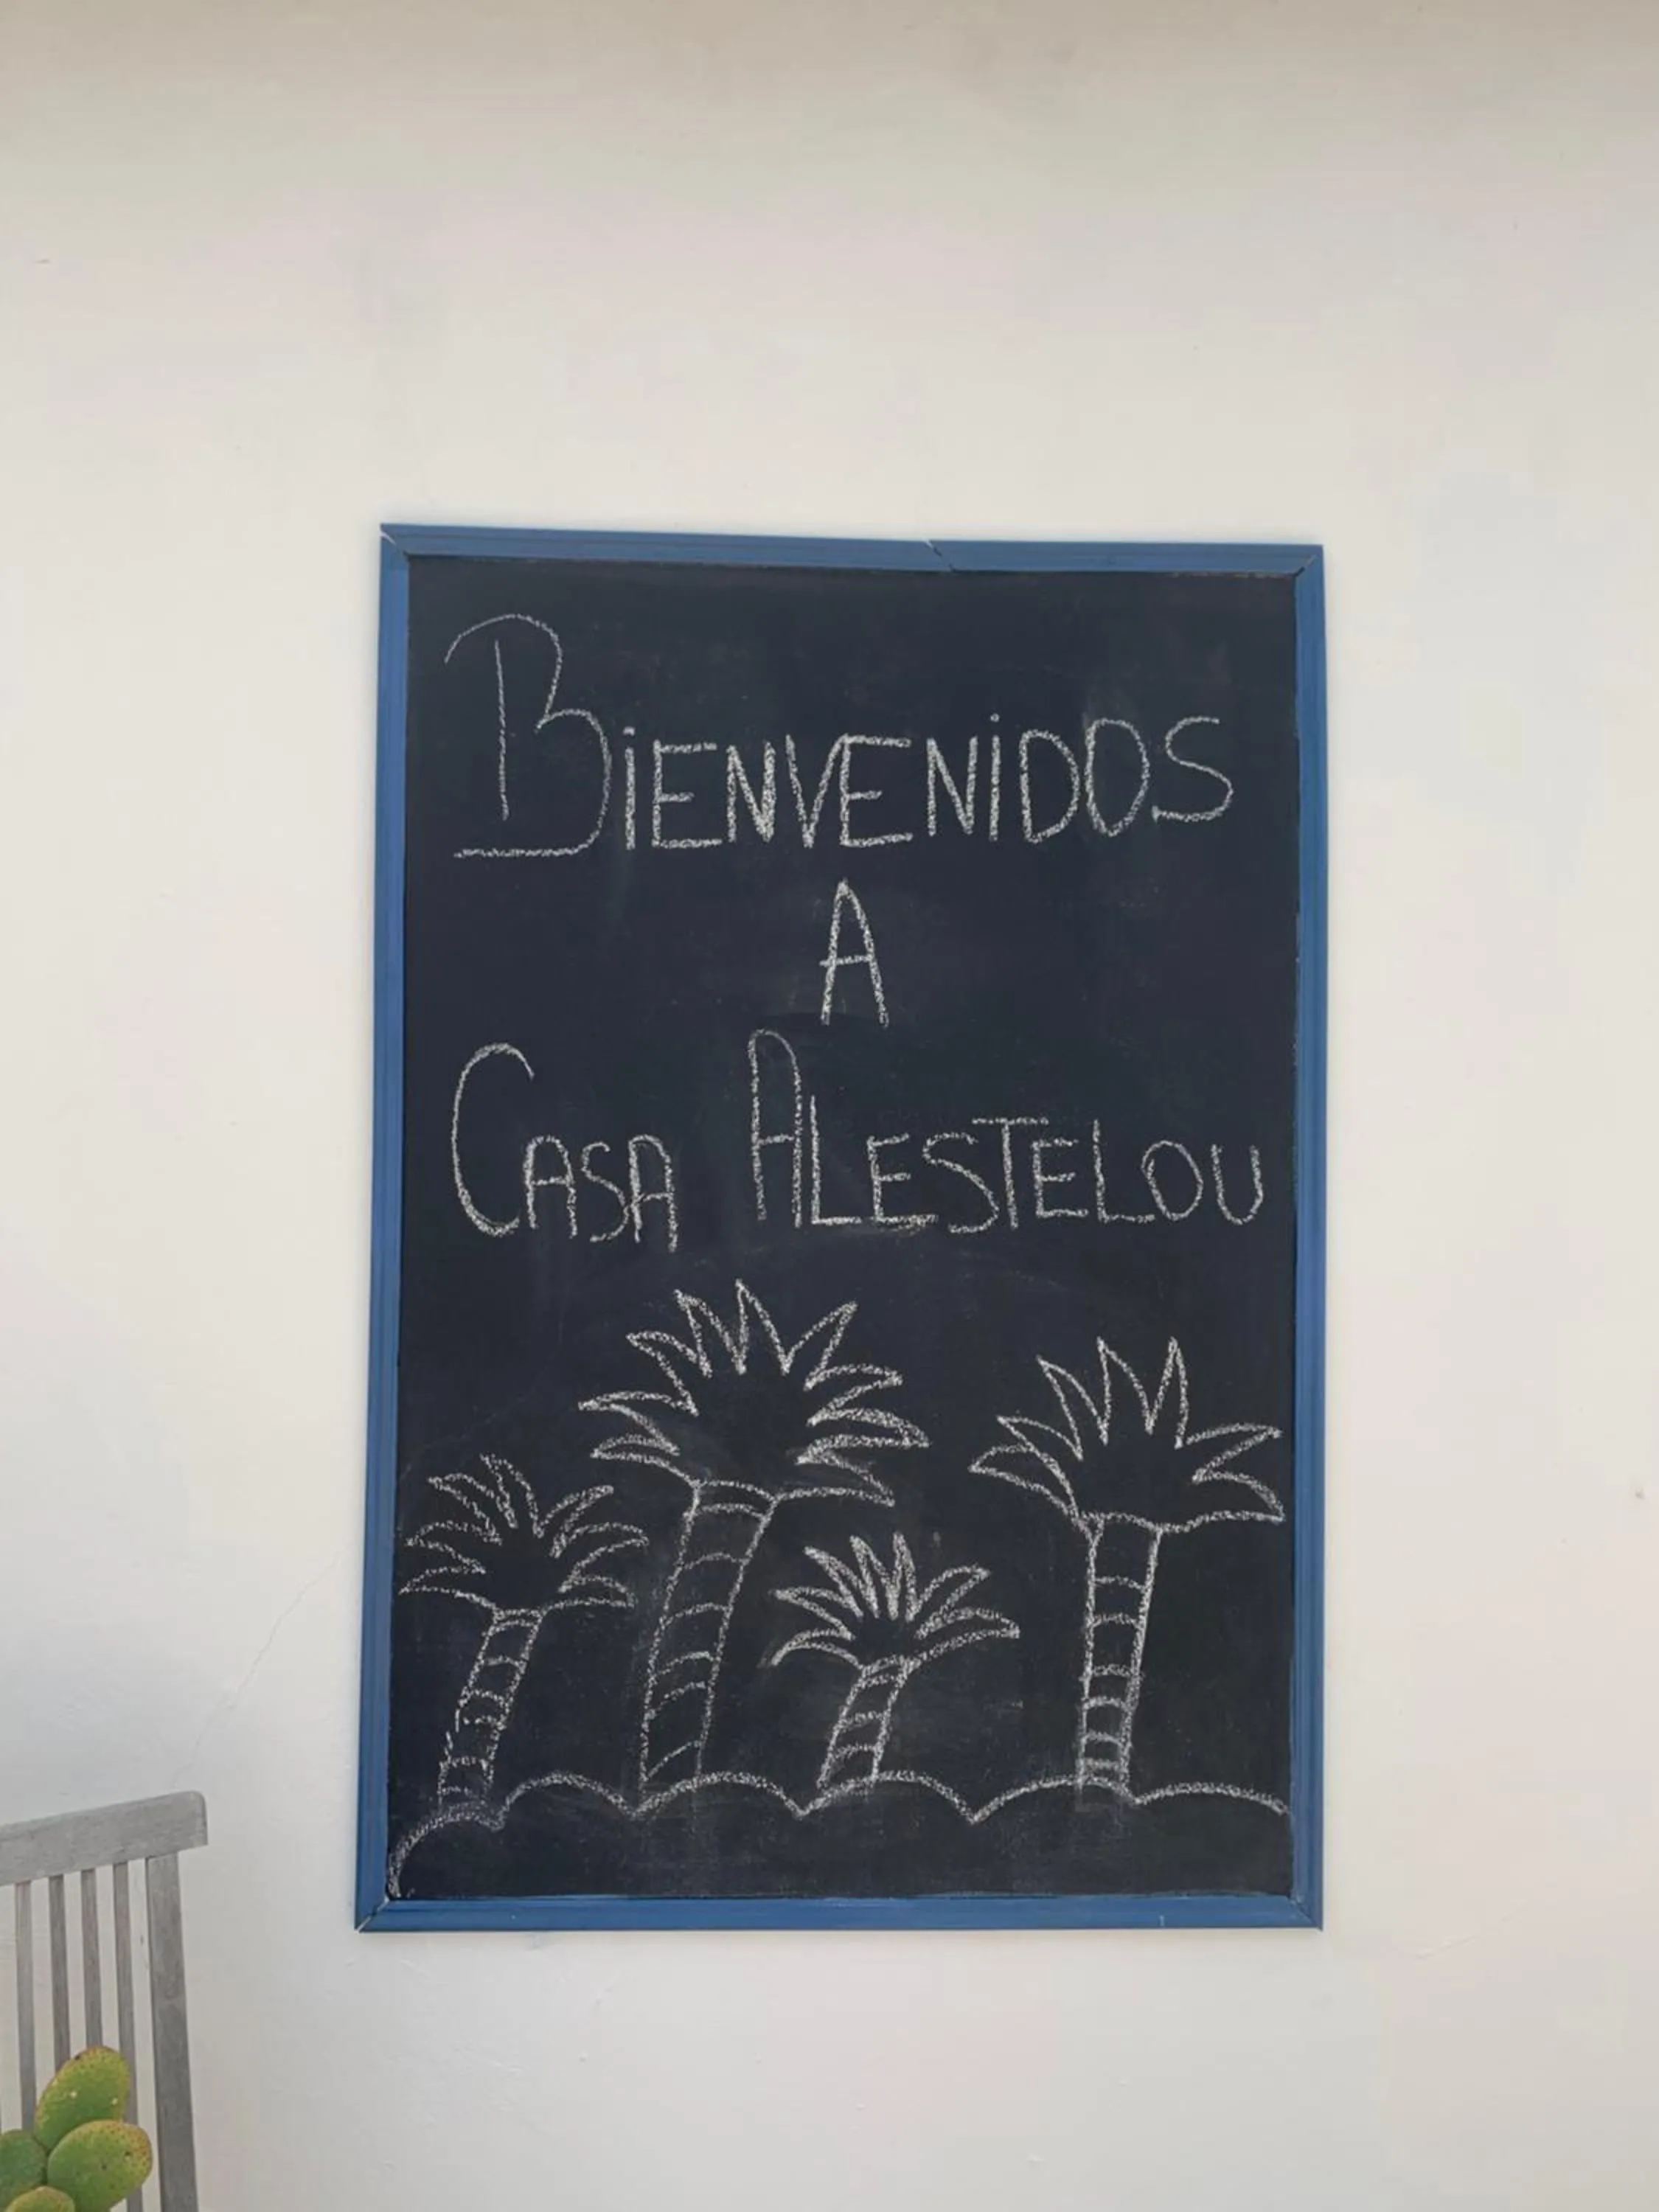 BiENVENiDOS
A
CASA ALESTELOU